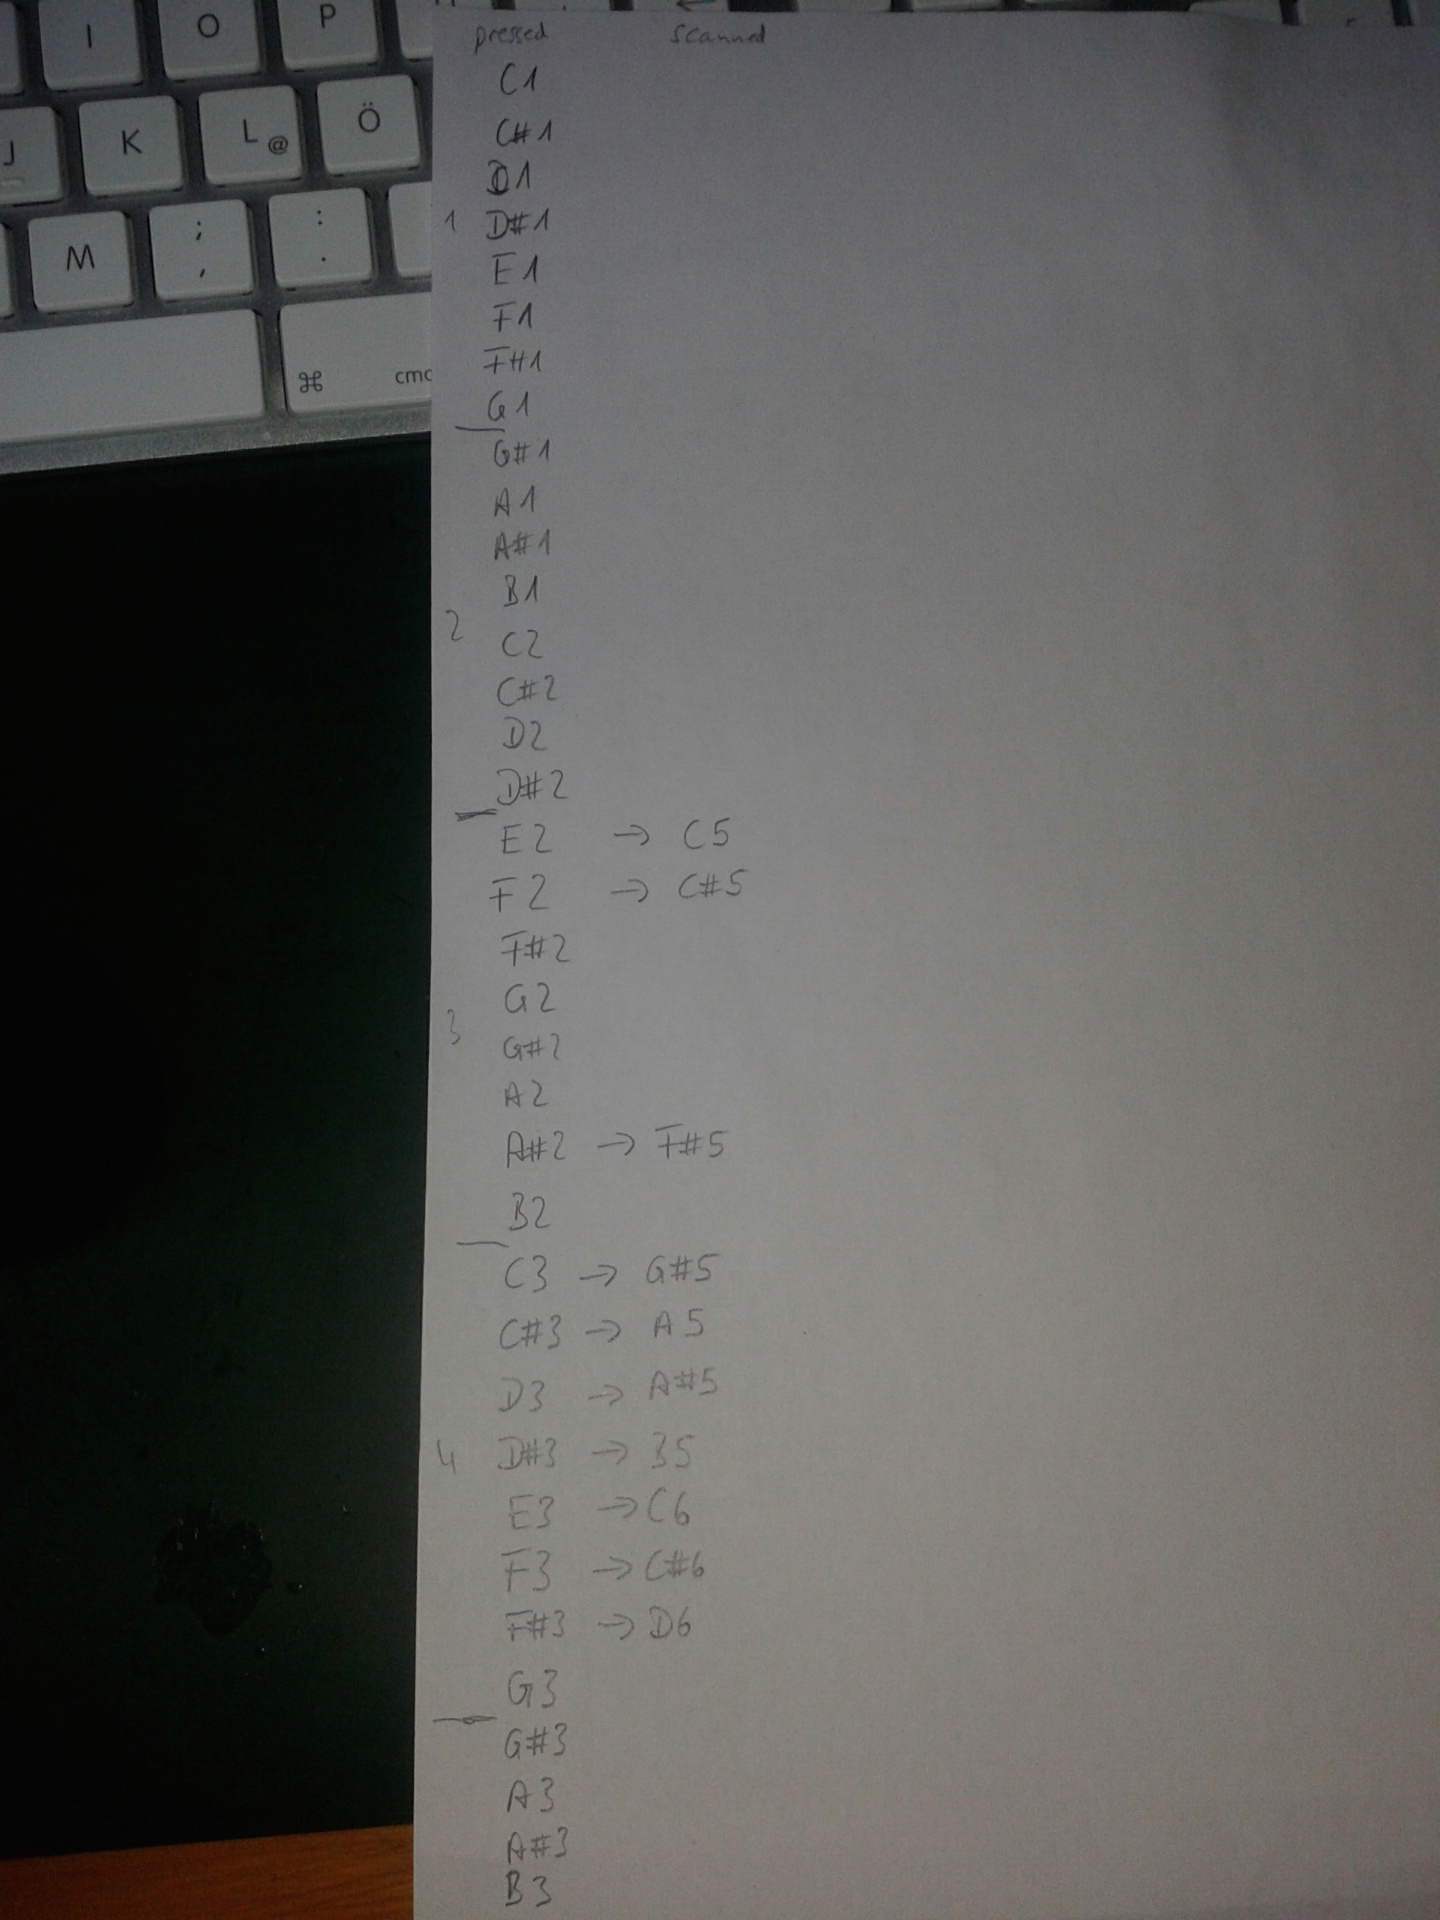 I O P
J K L @ Ö
M ; , : .
⌘ cmd
pressed scanned
C1
C#1
D1
1 D#1
E1
F1
F#1
G1
G#1
A1
A#1
B1
2
C2
C#2
D2
D#2
E2 → C5
F2 → C#5
F#2
G2
3
G#2
A2
A#2 → F#5
B2
C3 → G#5
C#3 → A5
D3 → A#5
4 D#3 → B5
E3 → C6
F3 → C#6
F#3 → D6
G3
G#3
A3
A#3
B3